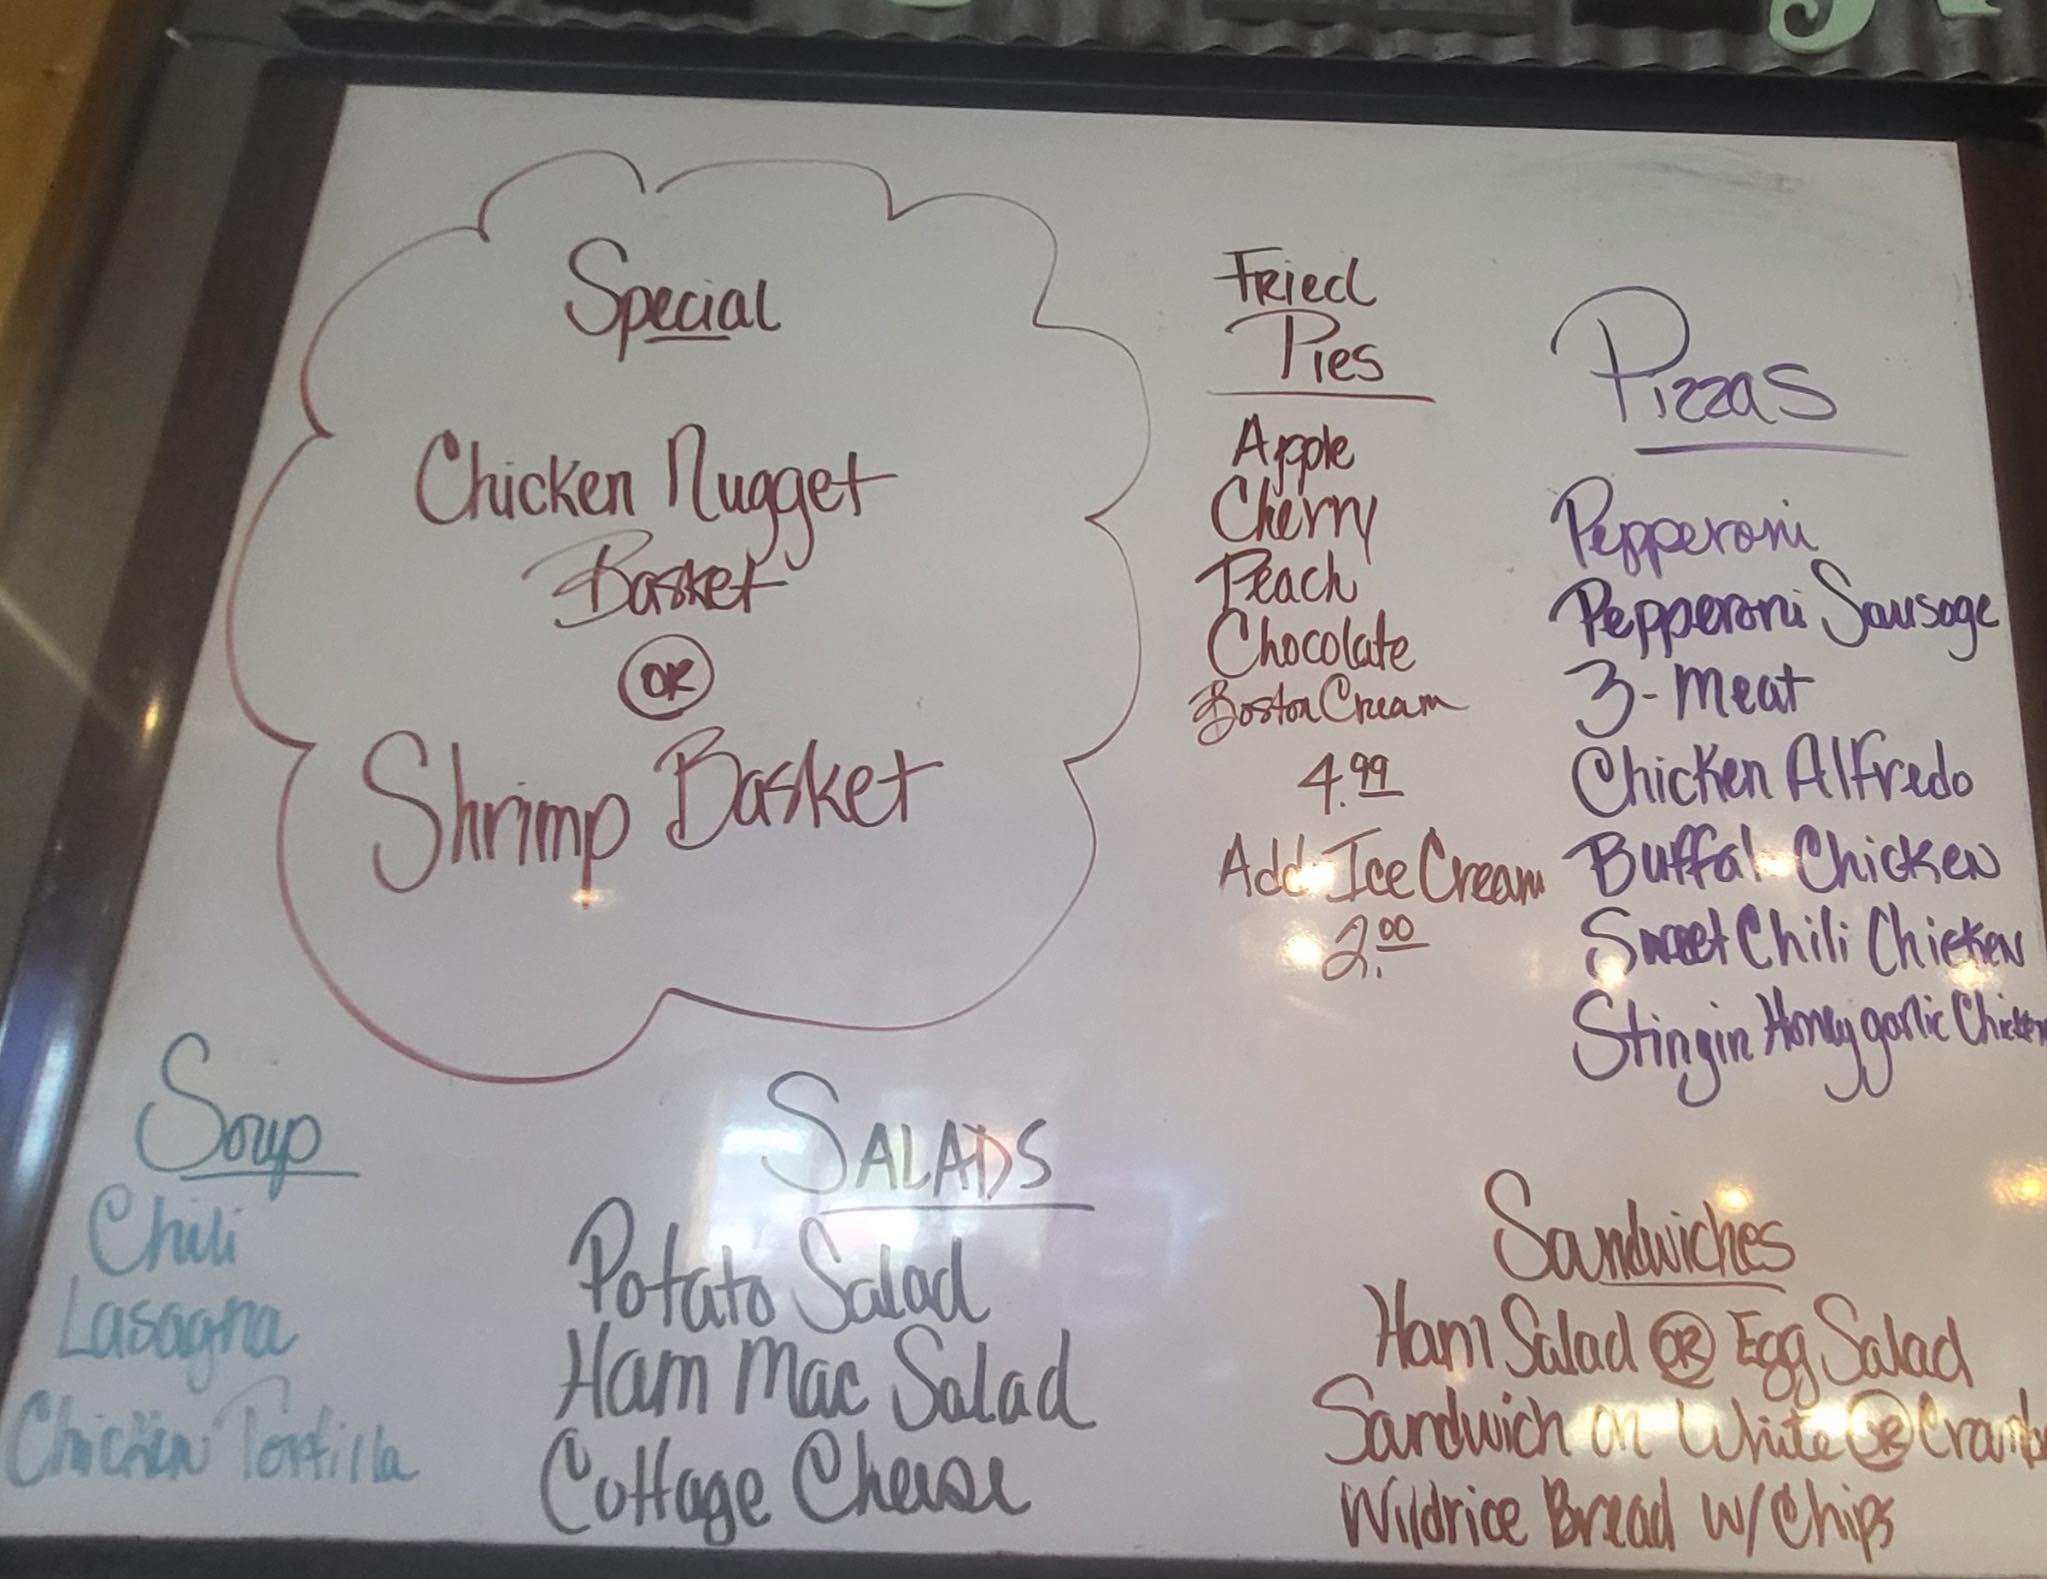 Special
Chicken Nugget
Basket
OR
Shrimp Basket
Fried
Pies
Apple
Cherry
Peach
Chocolate
Boston Cream
4.99
Add Ice Cream
2.00
Pizzas
Pepperoni
Pepperoni Sausage
3-Meat
Chicken Alfredo
Buffal Chicken
Sweet Chili Chicken
Stingin Honey garlic Chicken
Soup
Chili
Lasagna
Chicken Tortilla
SALADS
Potato Salad
Ham Mac Salad
Cottage Cheese
Sandwiches
Ham Salad OR Egg Salad
Sandwich on White OR Cranb
Wildrice Bread w/ Chips